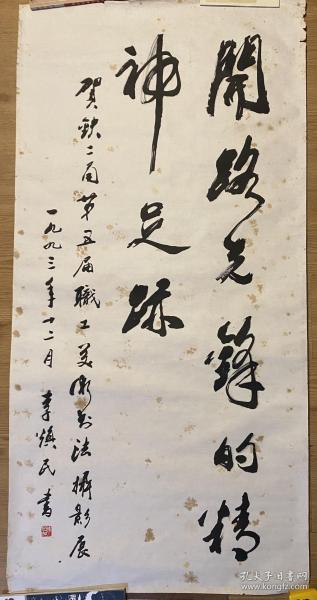 開路先鋒的精
神足跡
賀鉄二局第五届職工美術书法攝影展
一九九三年十二月 李慎民书
孔夫子旧书网
www.kongfz.com